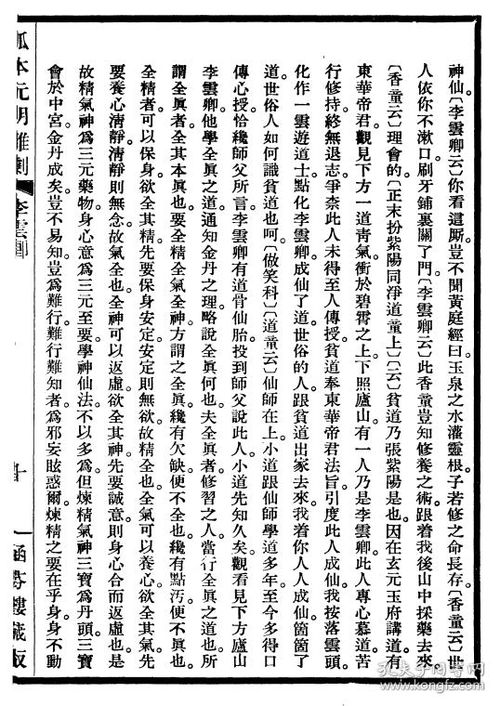 神仙〔李雲卿云〕你看這厮豈不聞黃庭經曰玉泉之水灌靈根子若修之命長存〔香童云〕世
人依你不漱口刷牙鋪裏關了門〔李雲卿云〕此香童豈知修養之術跟着我後山中採藥去來
〔香童云〕理會的〔正末扮紫陽同淨道童上〕〔云〕貧道乃張紫陽是也因在玄元玉府講道有
東華帝君觀見下方一道青氣衝於碧霄之上下照廬山有一人乃是李雲卿此人專心慕道苦
行修持終無退志爭奈此人未得至人傳授貧道奉東華帝君法旨引度此人成仙我按落雲頭
化作一雲遊道士點化李雲卿成仙了道世俗的人跟貧道出家去來我着你人人成仙箇箇了
道世俗人如何識貧道也呵〔做笑科〕〔道童云〕仙師在上小道跟仙師學道多年至今多得口
傳心授恰纔師父所言李雲卿有道骨仙胎投到師父說此人小道先知久矣觀看見下方廬山
李雲卿他學全眞之道通知金丹之理略說全眞何也夫全眞者修習之人當行全眞之道也所
謂全眞者全其本眞也要全精全氣全神方謂之全眞纔有欠缺便不全也纔有點汚便不眞也
全精者可以保身欲全其精先要保身安定安定則無欲故精全也全氣可以養心欲全其氣先
要養心清靜清靜則無念故氣全也全神可以返虛欲全其神先要誠意則身心合而返虛也是
故精氣神爲三元藥物身心意爲三元至要學神仙法不以多爲但煉精氣神三寶爲丹頭三寶
會於中宮金丹成矣豈不易知豈爲難行難行難知者爲邪妄眩惑爾煉精之要在乎身身不動
孤本元明雜劇
李雲卿
十
涵芬樓藏版
孔夫子舊書網
www.kongfz.com